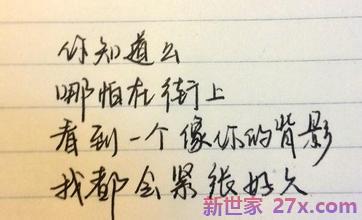 你知道么
哪怕在街上
看到一个像你的背影
我都会紧张好久
新世家 27x.com